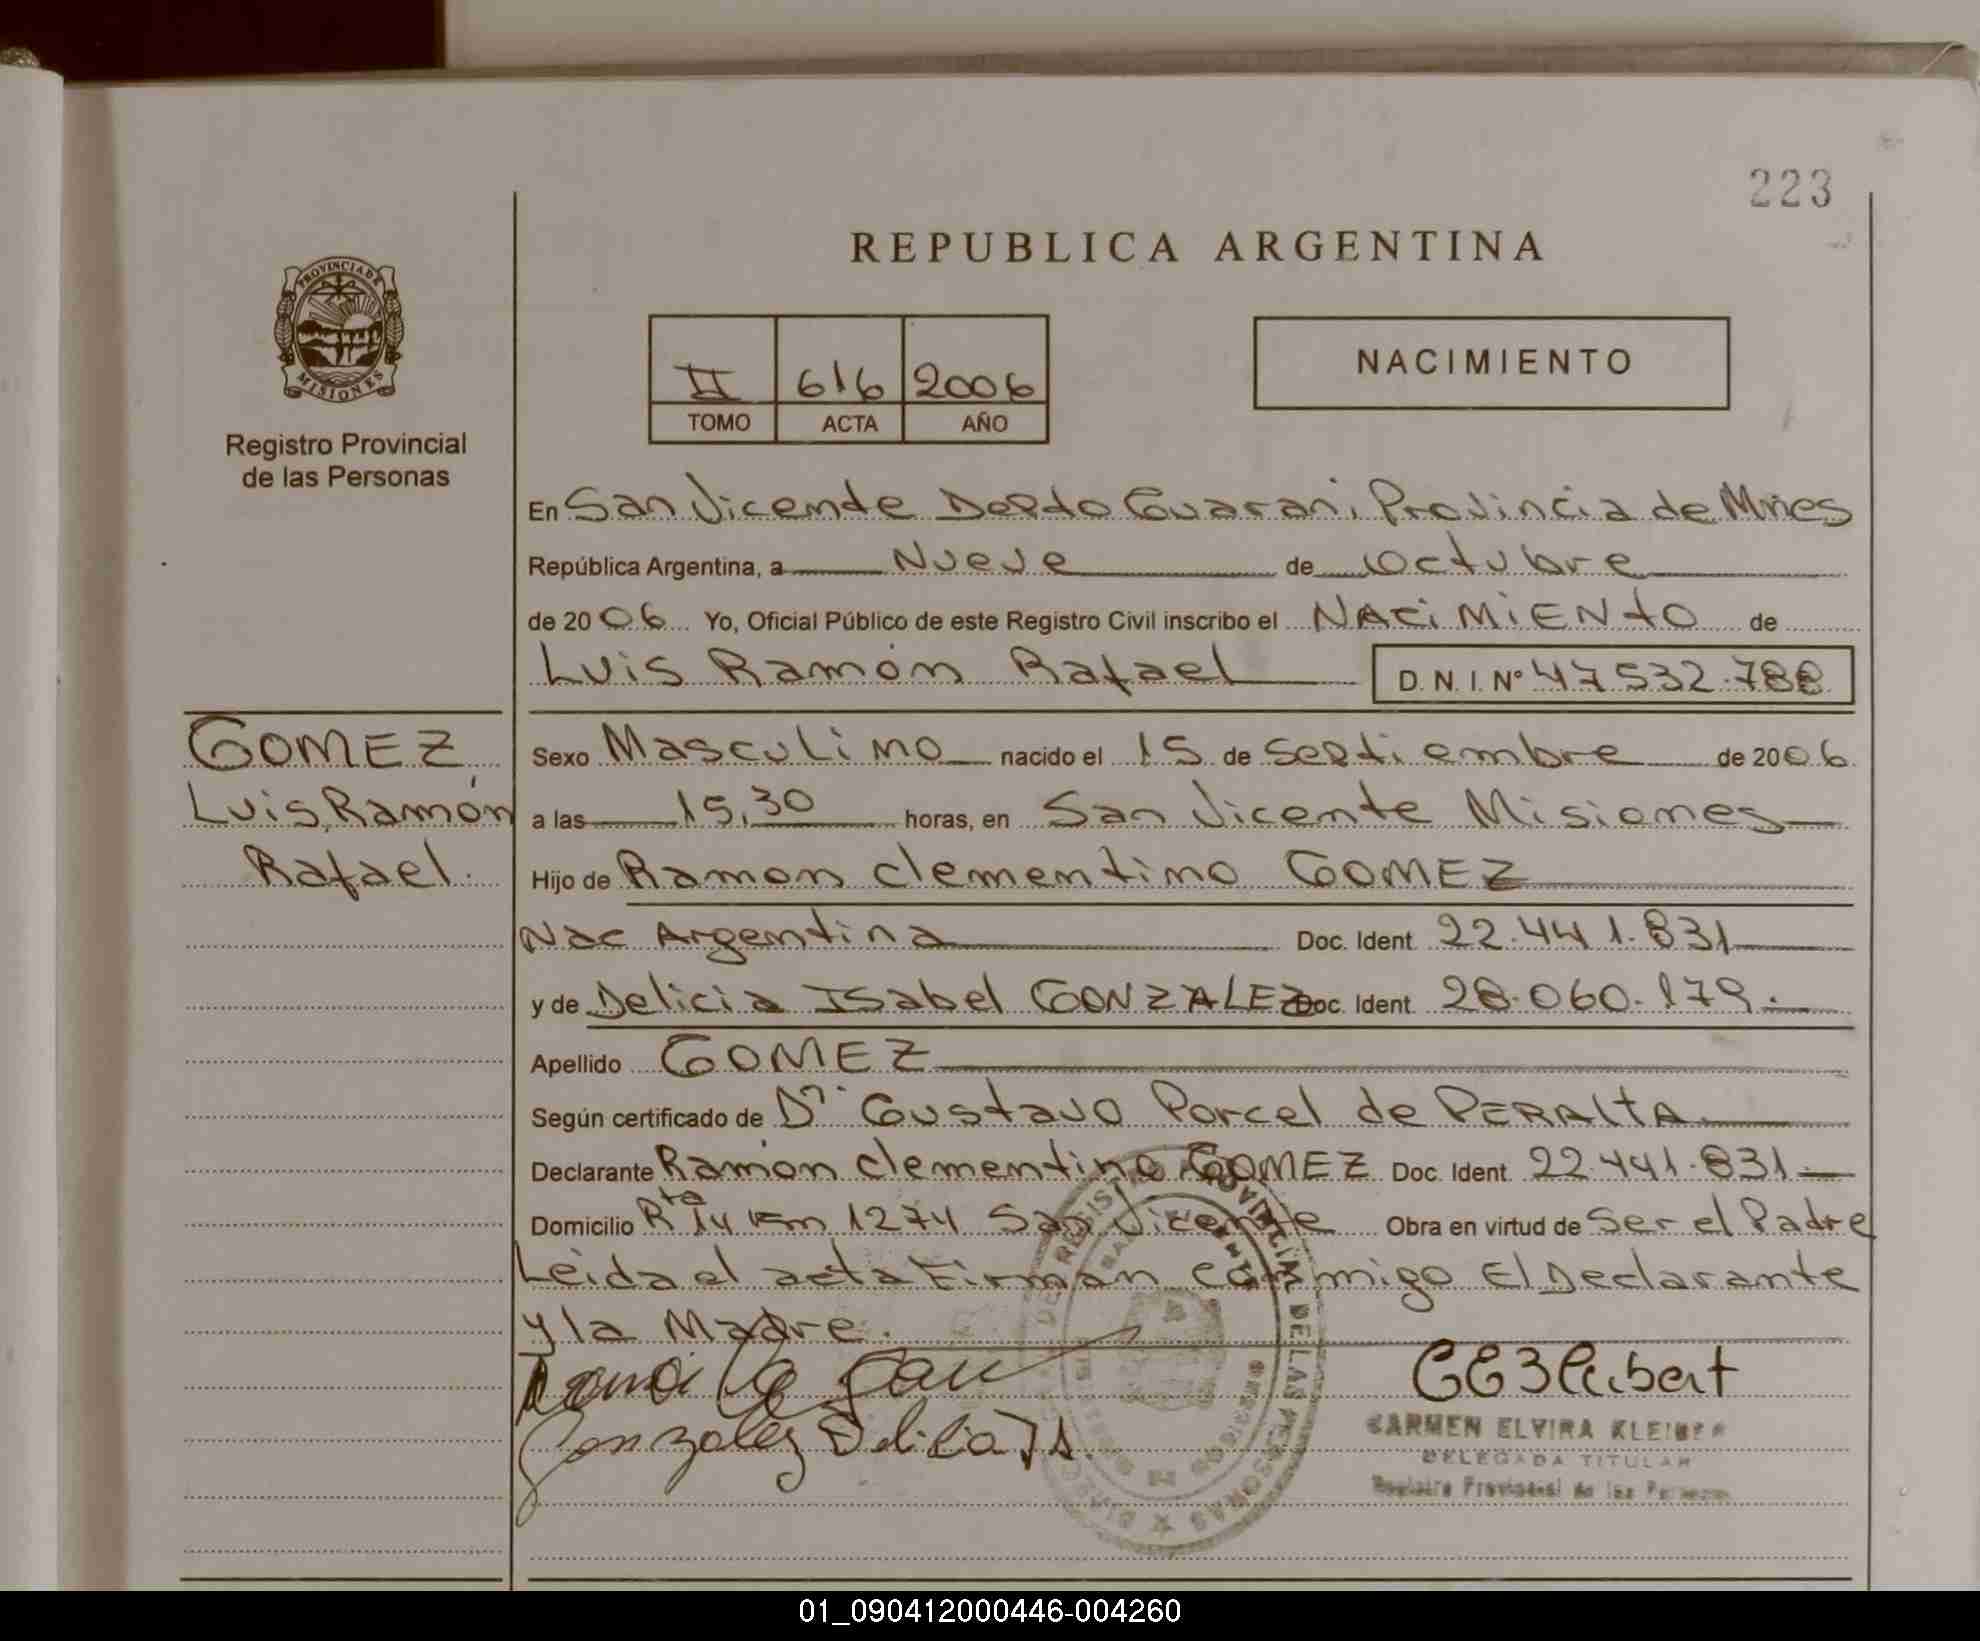 223
REPUBLICA ARGENTINA
PROVINCIA DE
MISIONES
Registro Provincial
de las Personas
II 616 2006
TOMO ACTA AÑO
NACIMIENTO
En San Vicente Depto Guarani, Provincia de Mnes
República Argentina, a Nueve de Octubre
de 2006 Yo, Oficial Público de este Registro Civil inscribo el NACiMiENtO de
Luis Ramón Rafael D. N. I. N° 47532.788
GOMEZ,
Luis Ramón
Rafael.
Sexo Masculino nacido el 15 de Septiembre de 2006
a las 15,30 horas, en San Vicente Misiones
Hijo de Ramon Clementino GOMEZ
Nac Argentina Doc. Ident. 22.441.831
y de Delicia Isabel GONZALEZ Doc. Ident. 28.060.179.
Apellido GOMEZ
Según certificado de Dr. Gustavo Porcel de PERAltA
Declarante Ramón Clementino GOMEZ Doc. Ident. 22.441.831
Domicilio Rta 14 Km 1274 San Vicente Obra en virtud de Ser el Padre
Leida el acta Firman conmigo El Declarante
y la Madre.
Gonzalez Delicia Is.
CARMEN ELVIRA KLEIBER
DELEGADA TITULAR
Registro Provincial de las Personas
01_090412000446-004260